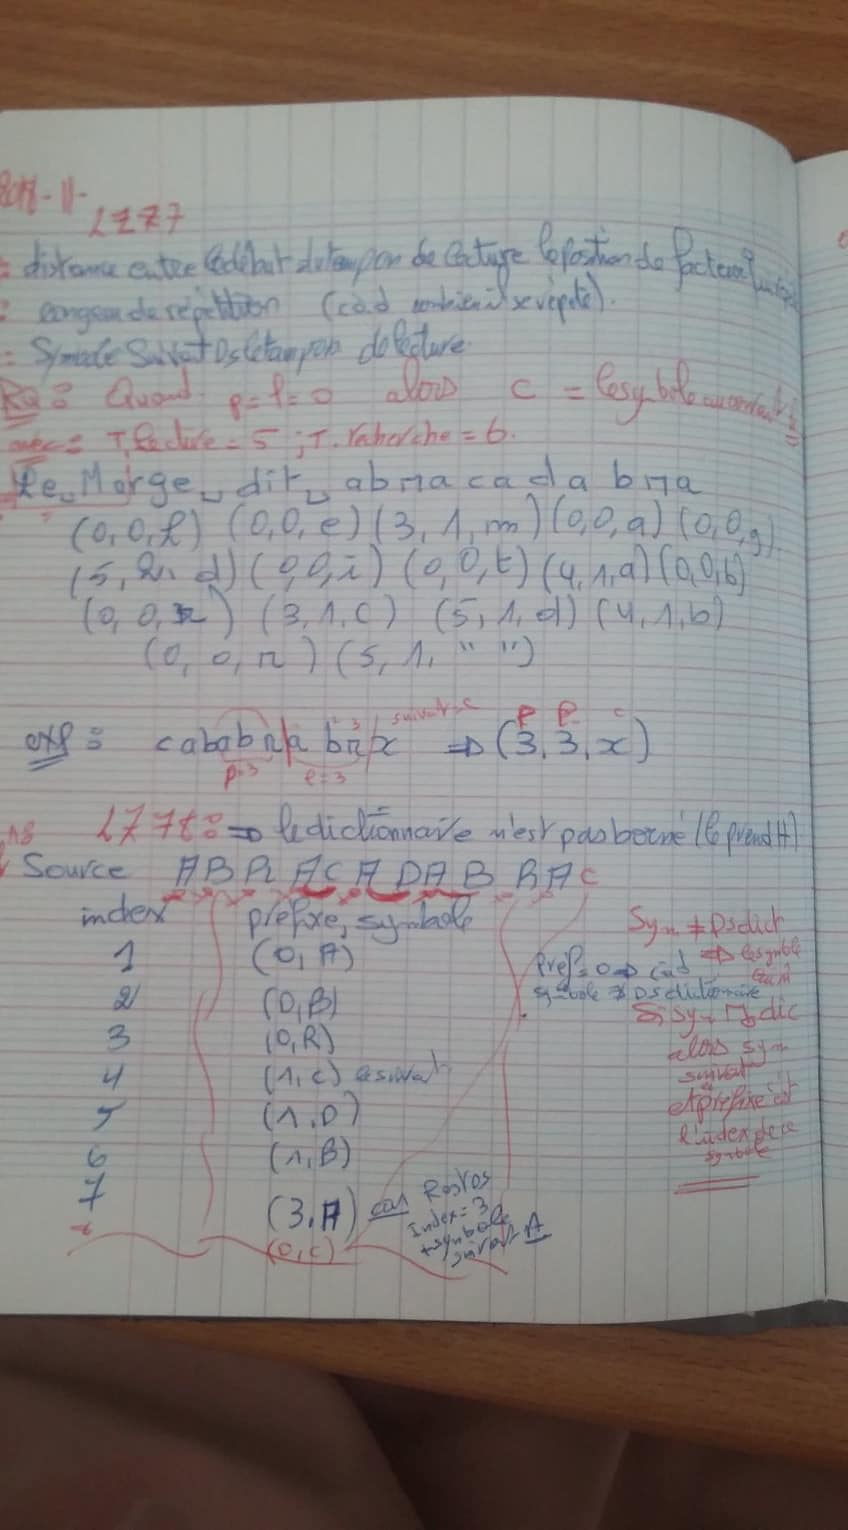 LZ77
: distance entre le début du tampon de lecture la position de facteur
: longueur de répétition (càd combien il se répète).
: Symbole Suivat Ds le tampon de lecture
Rq : Quand p = l = 0 alors c = le symbole
avec : T. lecture = 5 ; T. recherche = 6.
Le␣Marge␣dit␣abracadabra
(0,0,l) (0,0,e) (3,1,m) (0,0,a) (0,0,g)
(5,2,d) (0,0,i) (0,0,t) (4,1,a) (0,0,b)
(0,0,r) (3,1,c) (5,1,d) (4,1,b)
(0,0,r) (5,1," ")
suivat = c
exp : cababr|abr|x ⇒ (3,3,x)
p=3 l=3
LZ78 : ⇒ le dictionnaire n'est pas borné
Source A B R A C A D A B R A C
index prefixe, symbole
1 (0, A)
2 (0, B)
3 (0, R)
4 (1, C)
5 (1, D)
6 (1, B)
7 (3, A) car
(0, C)
Index = 3
+ symbole
suivat A
pref = 0 ⇒ càd
symbole ∄ Ds dictionnaire
Sym ∄ Ds dict
⇒ le symble
Si sym ∃ dic
alors sym
suivat
et prefixe est
l'index de ce
symbole